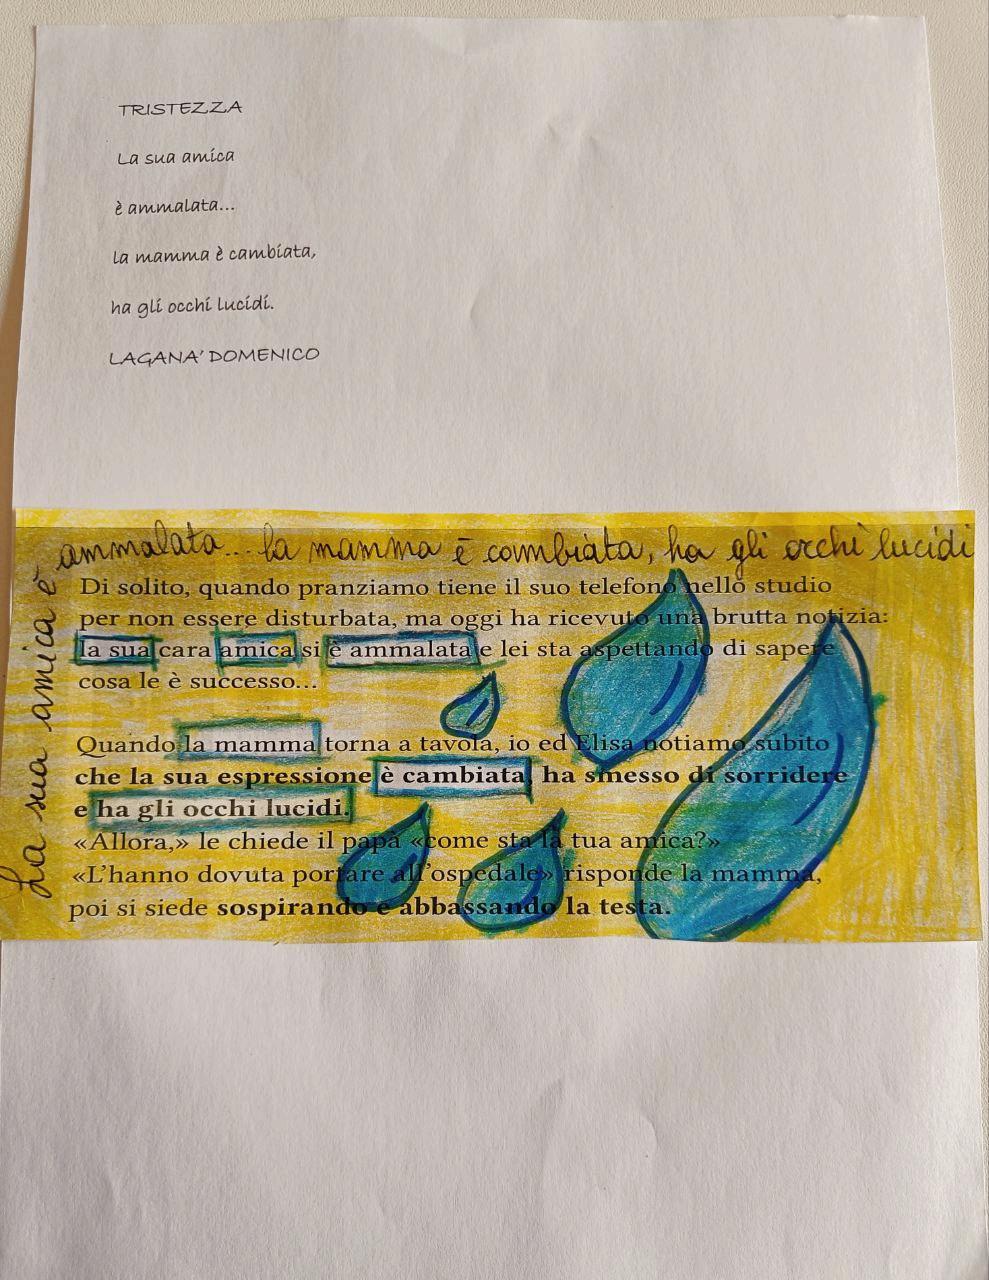 TRISTEZZA
La sua amica
è ammalata...
la mamma è cambiata,
ha gli occhi lucidi.
LAGANA' DOMENICO
La sua amica è
ammalata... la mamma è cambiata, ha gli occhi lucidi
Di solito, quando pranziamo tiene il suo telefono nello studio
per non essere disturbata, ma oggi ha ricevuto una brutta notizia:
la sua cara amica si è ammalata e lei sta aspettando di sapere
cosa le è successo...
Quando la mamma torna a tavola, io ed Elisa notiamo subito
che la sua espressione è cambiata, ha smesso di sorridere
e ha gli occhi lucidi.
«Allora,» le chiede il papà «come sta la tua amica?»
«L'hanno dovuta portare all'ospedale» risponde la mamma,
poi si siede sospirando e abbassando la testa.